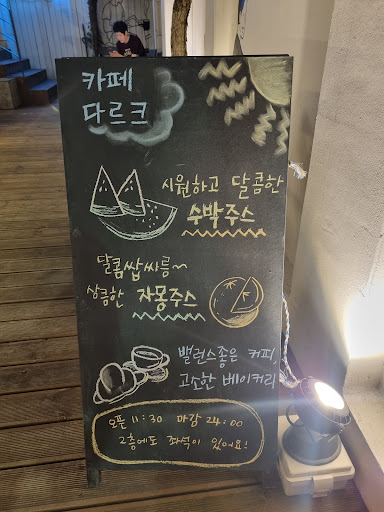 카페
다르크
시원하고 달콤한
수박주스
달콤쌉싸름~
상큼한 자몽주스
밸런스좋은 커피,
고소한 베이커리
오픈 11:30 마감 24:00
2층에도 좌석이 있어요!